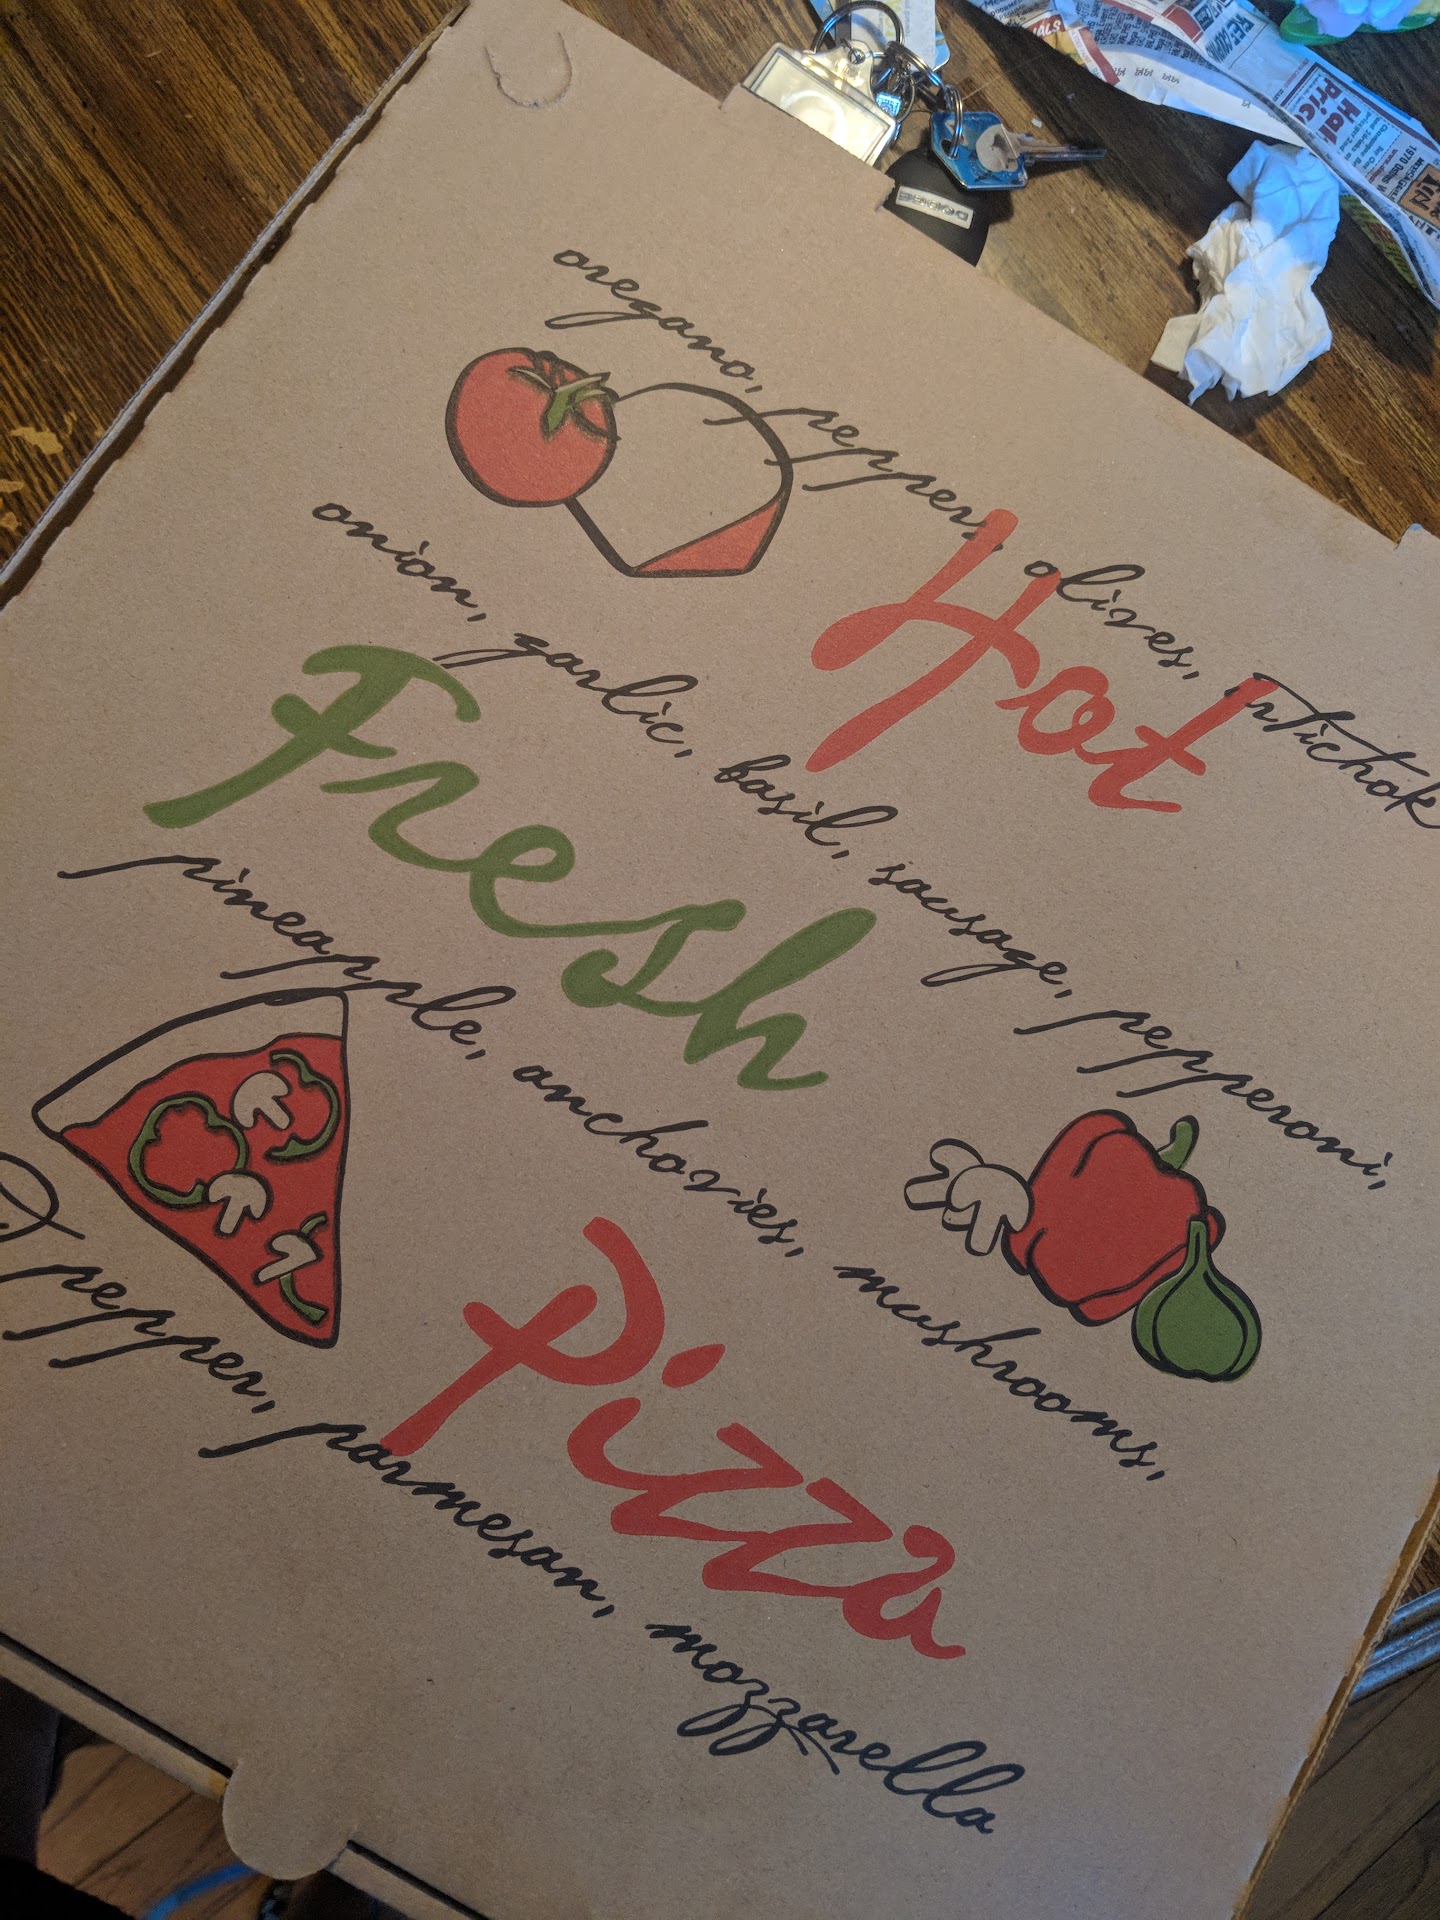 oregano, peppers, olives, artichok
Hot
onion, garlic, basil, sausage, pepperoni,
Fresh
pineapple, anchovies, mushrooms,
Pizza
pepper, parmesan, mozzarella
DODGE